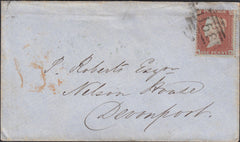 J. Roberts Esqre
Nelson House
Devonport.